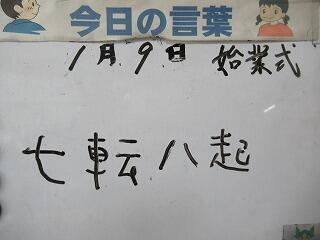 今日の言葉
1月9日 始業式
七転八起